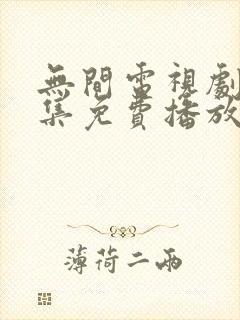 無間電視劇
集免費播放
薄荷二兩